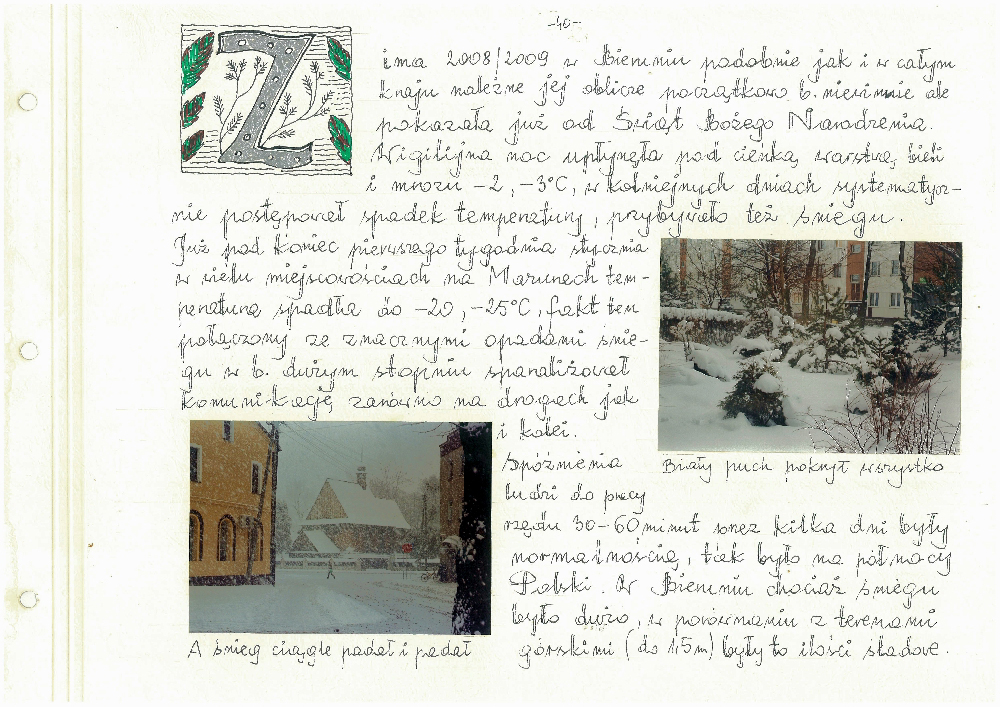 -40-
Zima 2008/2009 w Bieruniu podobnie jak i w całym
kraju należne jej oblicze początkowo b. nieśmiale
pokazała już od Świąt Bożego Narodzenia.
Wigilijna noc upłynęła pod cienką warstwą bieli
i mrozu -2, -3°C, w kolniejnych dniach systematycz-
nie postępował spadek temperatury, przybywało też śniegu.
Już pod koniec pierwszego tygodnia stycznia
w wielu miejscowościach na Mazurach tem-
peratura spadła do -20, -25°C, fakt ten
połączony ze znacznymi opadami śnie-
gu w b. dużym stopniu sparaliżował
komuni-kację zarówno na drogach jak
i kolei.
Biały puch pokrył wszystko
Spóźnienia
ludzi do pracy
rzędu 30-60 minut przez kilka dni były
normalnością, tak było na północy
Polski. W Bieruniu chociaż śniegu
było dużo, w porównaniu z terenami
górskimi (do 1,5m) były to ilości śladowe.
A śnieg ciągle padał i padał